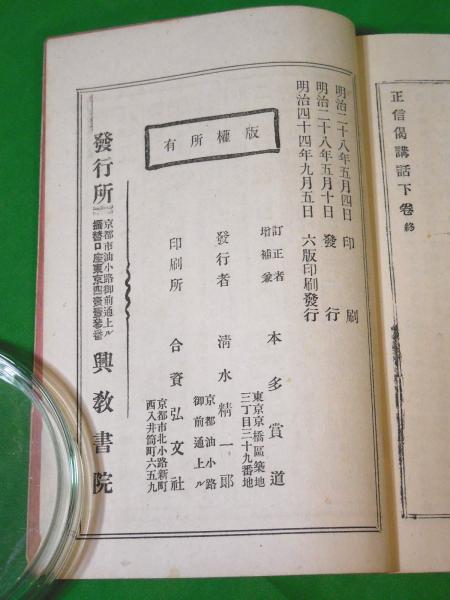 正信偈講話下卷終
明治二十八年五月四日 印刷
明治二十八年五月十日 發行
明治四十四年九月五日 六版印刷發行
版權所有
訂正者
增補兼
本多賞道
東京京橋區築地
三丁目三十九番地
發行者 淸水精一郎
京都油小路
御前通上ル
印刷所 合資弘文社
京都市北小路新町
西入井筒町六五九
發行所
京都市油小路御前通上ル
振替口座東京四壹壹參番
興敎書院